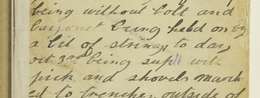 being without bolt and
bayonet being held on by
a bit of string to day
oct 3rd being supt with
pick and shovels march
ed to trenches outside of